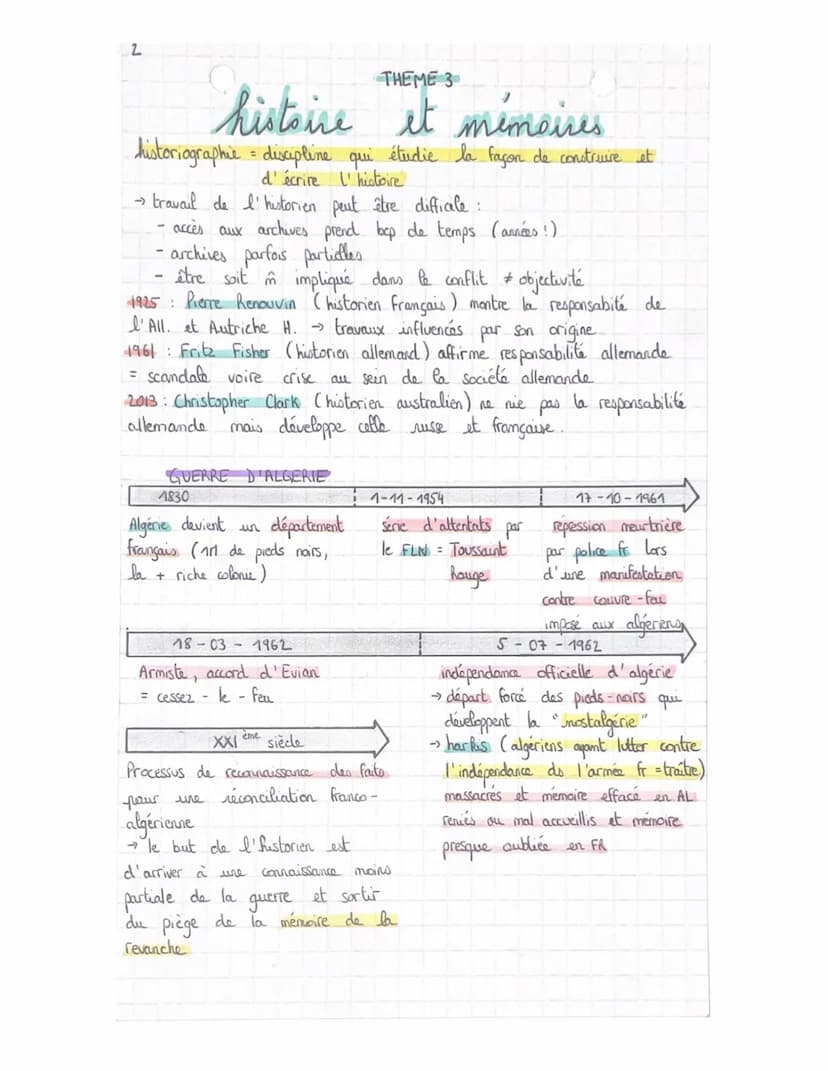 2
THEME 3
histoire et mémoires
historiographie = discipline qui étudie la façon de construire et
d'écrire l'histoire
→ travail de l'historien peut être difficile :
- accès aux archives prend bcp de temps (années !)
- archives parfois partielles
- être soit m̂ impliqué dans le conflit ≠ objectivité
1925 : Pierre Renouvin (historien français) montre la responsabité de
l'All. et Autriche H. → travaux influencés par son origine
1961 : Fritz Fisher (historien allemand) affirme responsabilité allemande
= scandale voire crise au sein de la société allemande
2013 : Christopher Clark (historien australien) ne nie pas la responsabilité
allemande mais développe celle russe et française.
GUERRE D'ALGERIE
1830
Algérie devient un département
français (1M de pieds noirs,
la + riche colonie)
1-11-1954
série d'attentats par
le FLN = Toussaint
Rouge
17-10-1961
répession meurtrière
par police fr lors
d'une manifestation
contre couvre-feu
imposé aux algériens
18-03-1962
Armiste, accord d'Evian
= cessez-le-feu
5-07-1962
indépendance officielle d'algérie
→ départ forcé des pieds-noirs qui
développent la "nostalgérie"
→ harkis (algériens ayant lutter contre
l'indépendance ds l'armée fr = traître)
massacrés et mémoire effacé en AL
reniés ou mal accueillis et mémoire
presque oubliée en FR
XXI ème siècle
Processus de reconnaissance des faits
pour une réconciliation franco-
algérienne
→ le but de l'historien est
d'arriver à une connaissance moins
partiale de la guerre et sortir
du piège de la mémoire de la
revanche